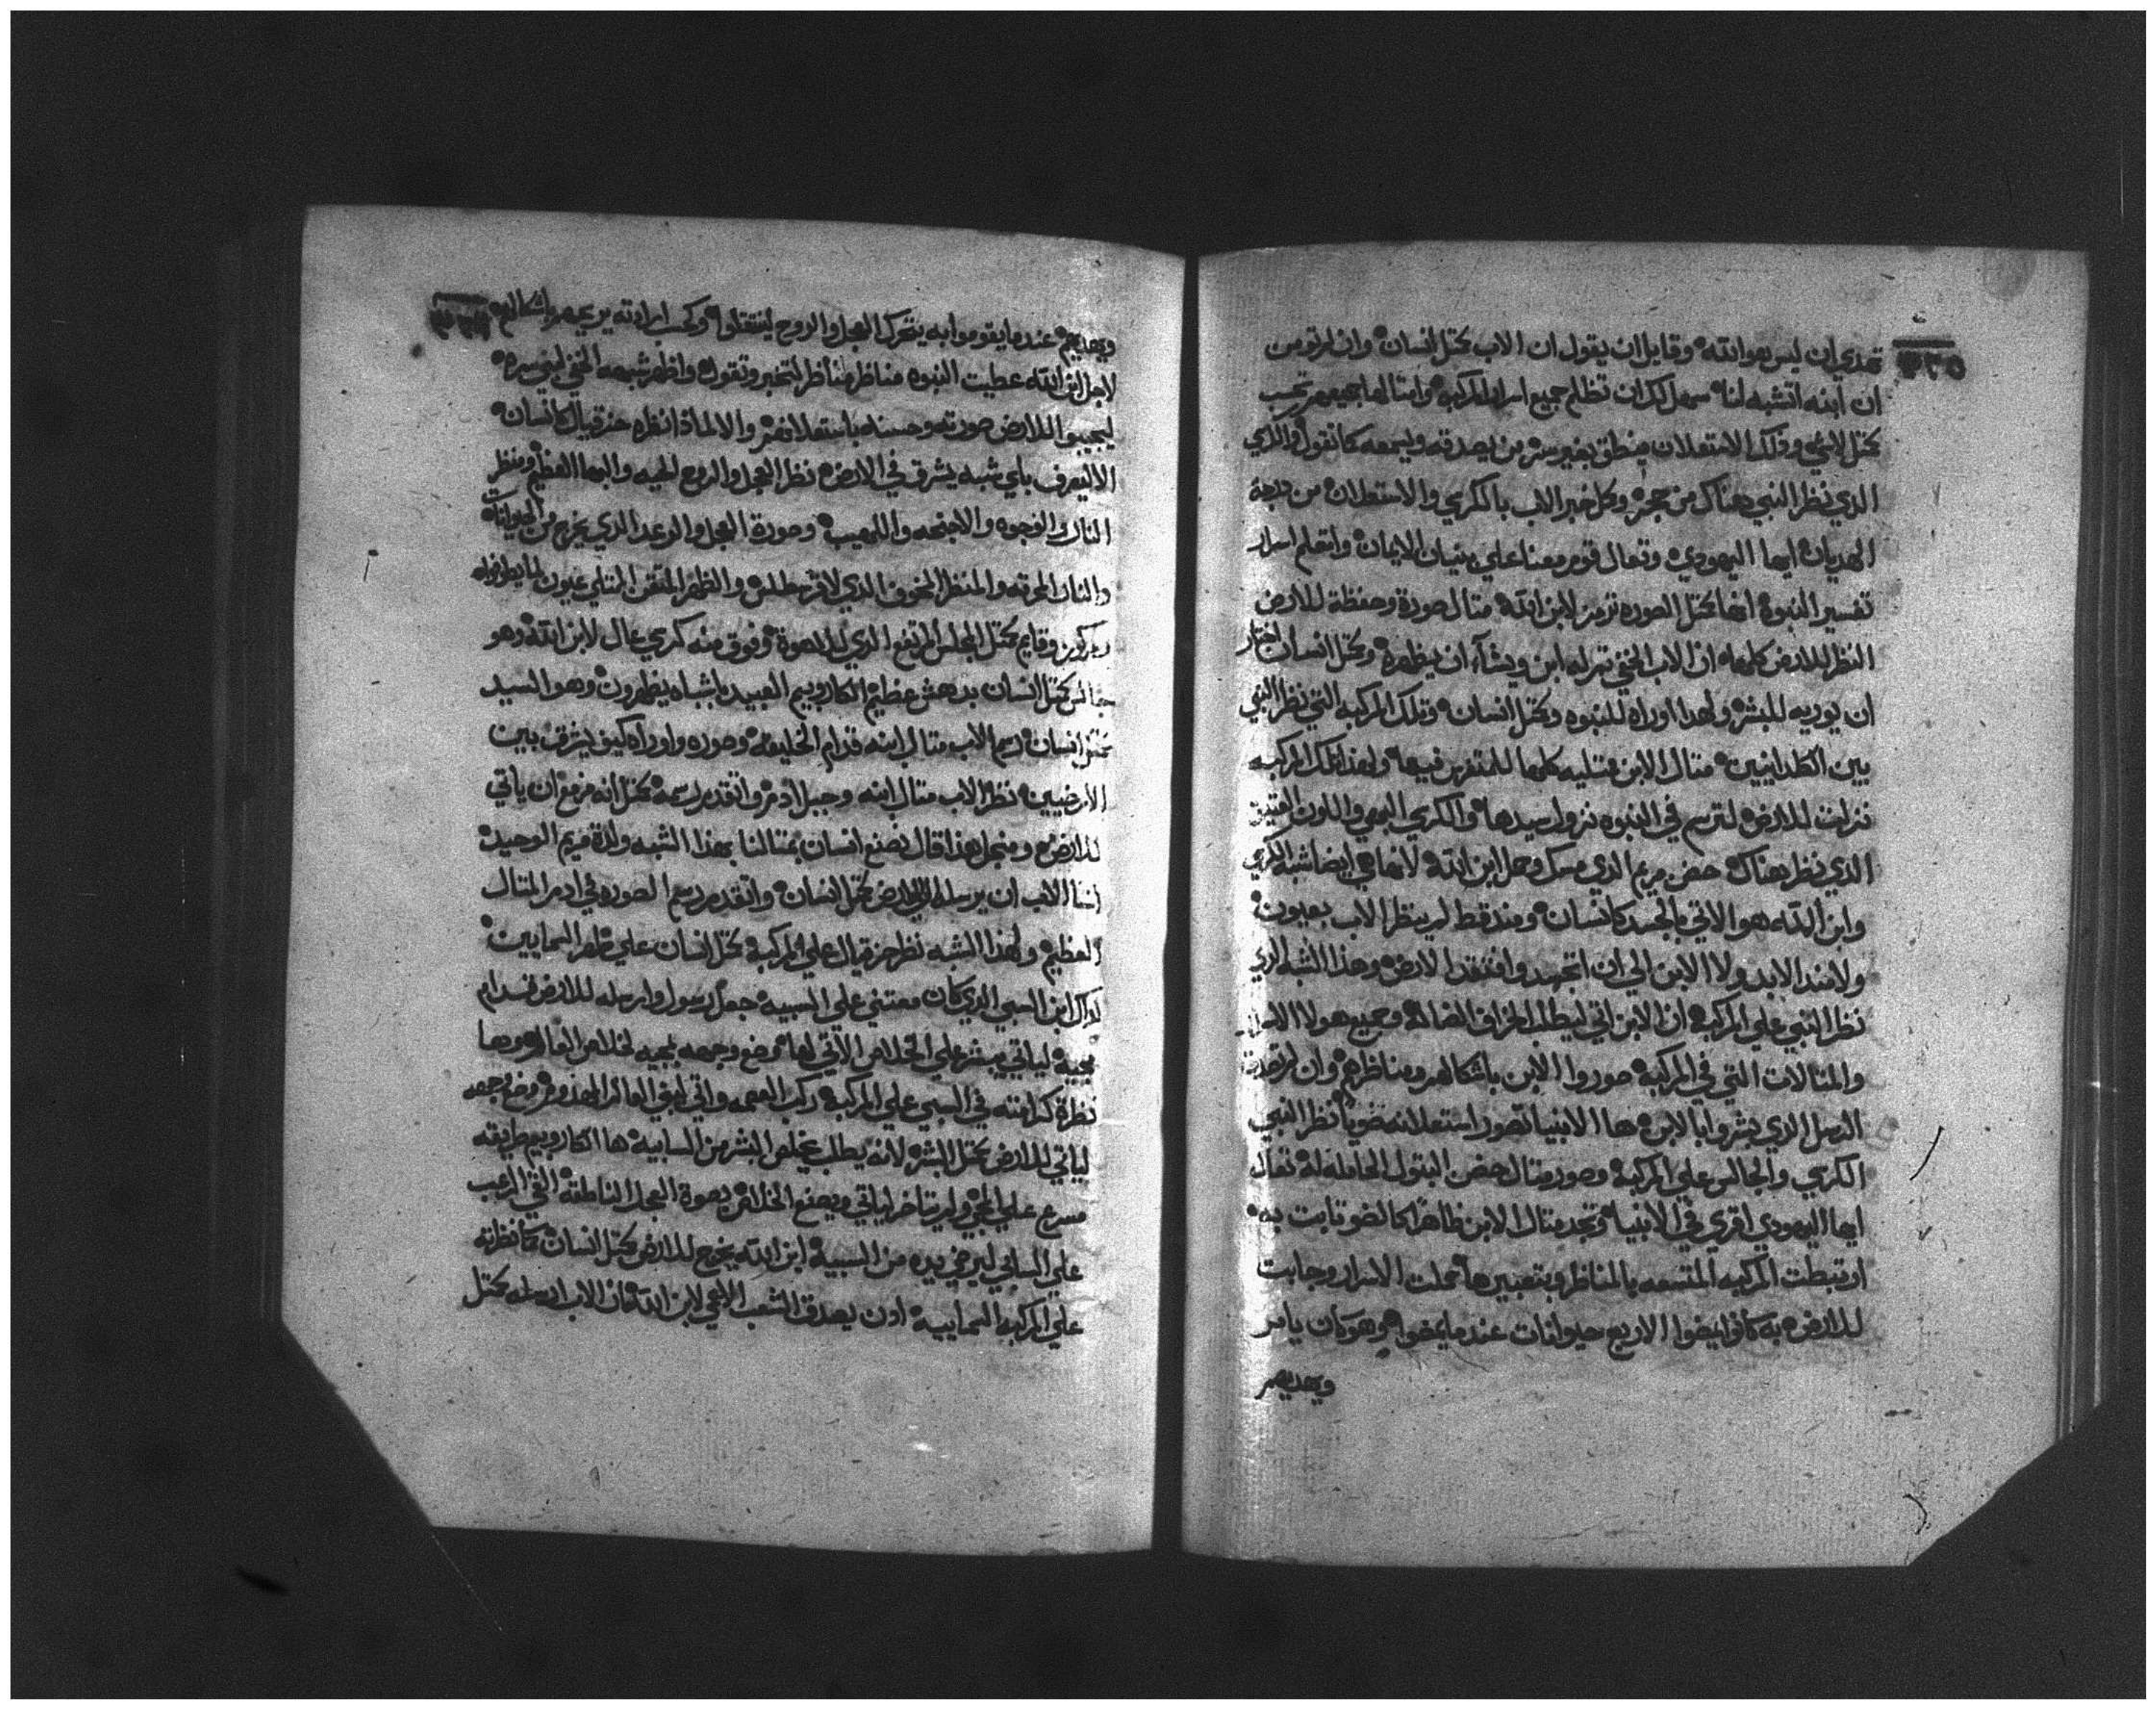 تهدي ان ليس هو الله وقايل ان يقول ان الاب كمثل انسان وان لم تومن
ان ابنه اتشبه لنا سهل لك ان تظلم جميع اسرار المركبه وامثالها جميعهم تحسب
كمثل لاشي وذلك الاستعلان منطق بغير ستر من يصدقه ويسمعه كما تقول والذي
الذي نظر النبي هناك من حجره وكل خبر الاب بالكرسي والاستعلان من جهة
الهديان ايها اليهودي وتعال قوم معنا علي بنيان الايمان واتعلم اسرار
تفسير النبوة انها كمثل الصوره ترمز لابن الله مثال صورة وحفظة للارض
النظر للارض كلها ان الاب الخفي تم له ابن ويشآء ان يظهره وكمثل انسان اختار
ان يوريه للبشر ولهدا اوراه للنبوه وكمثل انسان وتلك المركبه التي نظر النبي
بين الكلدانيين مثال الابن ممتليه كلها للمتفرس فيها ولهذا تلك المركبه
نزلت للارض لترسم في النبوه نزول سيدها والكرسي البهي واللون العتيق
الذي نظر هناك حضن مريم الذي مسك وحمل ابن الله لانها هي ايضا شبه الكرسي
وابن الله هو الاتي بالجسد كانسان ومند قط لم ينظر الاب بعيون
ولا مند الابد ولا الابن الي ان اتجسد وافتقد الارض وهذا الشبه الدي
نظر النبي علي المركبه ان الابن اتي ليطلب الخراف الضالة وجميع هولا الاسرار
والمثالات التي في المركبه صوروا الابن باشكالهم ومناظرهم وان لم تصدق
الرسل الذي بشروا بالابن ها الانبيا تصور استعلانه ضويا نظر النبي
الكرسي والجالس علي المركبه وصور مثال حضن البتول الحامله له تعال
ايها اليهودي اقري في الانبيا وتجد مثال الابن ظاهرا كالضو ثابت به
ارتبطت المركبه المتسعه بالمناظر وبتعبيرها حملت الاسرار وجابت
للارض به كانوا يمضوا الاربع حيوانات عندما يمضوا وهو كان يامر
ويهديهم
ويهديهم عندما يقوموا به يتحرك العجل والروح لينتقلوا وكحسب ارادته يريعهم باشكالهم
لاجل ابن الله عطيت النبوه مناظر مناظر لتخبر وتقول واظهر شبهه الخفي لبني سره
ليجيبوا للارض صورته وحسنه باستعلانهم والا لماذا نظره حزقيال كانسان
الا ليعرف باي شبه يشرق في الارض نظر العجل والروح الحيه والبها العظيم ومنظر
النار والوجوه والاجنحه واللهيب وصورة العجل والوعد الذي يخرج من الحيوانات
والنار المحرقه والمنظر المخوف الذي لا والظهر المتقن الممتلي عيون
وقايم كمثل المجلس المرتفع الذي للاهوة وفوق منه كرسي عال لابن الله وهو
جالس كمثل انسان بدهش عظيم الكاروبيم العبيد باشباه يظهرون وهو السيد
كمثل انسان رسم الاب مثال ابنه قدام الخليقه وصوره واوراه كيف يشرق بين
الارضيين نظر الاب مثال ابنه وجبل ادم واتقدم رسمه كمثل انه مزمع ان ياتي
للارض ومنجل هذا قال نصنع انسان بمثالنا بهذا الشبه ولدة مريم الوحيد
انشا الاب ان يرسله الي الارض كمثل انسان واتقدم رسم الصوره في ادم المثال
العظيم ولهذا الشبه نظر حزقيال علي المركبه كمثل انسان علي ظهر السماييين
لذلك ابن السبي الذي كان معتني علي السبيه جعل رسول وارسله للارض قدام
مجيه لياتي يبشر علي الخلاص الاتي لها وضع وجهه لمجيه لخلاص العالم وها
نظرة كرامته في السبي علي المركبه ركب العممه واتي لبني العالم المهدوم وضع وجهه
لياتي للارض كمثل البشر لانه يطلب يخلص البشر من السابيه ها الكاروبيم طريقه
مسرع علي المجي ولم يتاخر لياتي ويصنع الخلاص بصوة العجل الناطقه التي الرعب
علي السابي ليرخي يده من السبيه ابن الله يخرج للارض كمثل انسان كما نظرته
علي المركبه السماييه اذن يصدق الشعب الاعمي لابن الله فان الاب ارسله كمثل